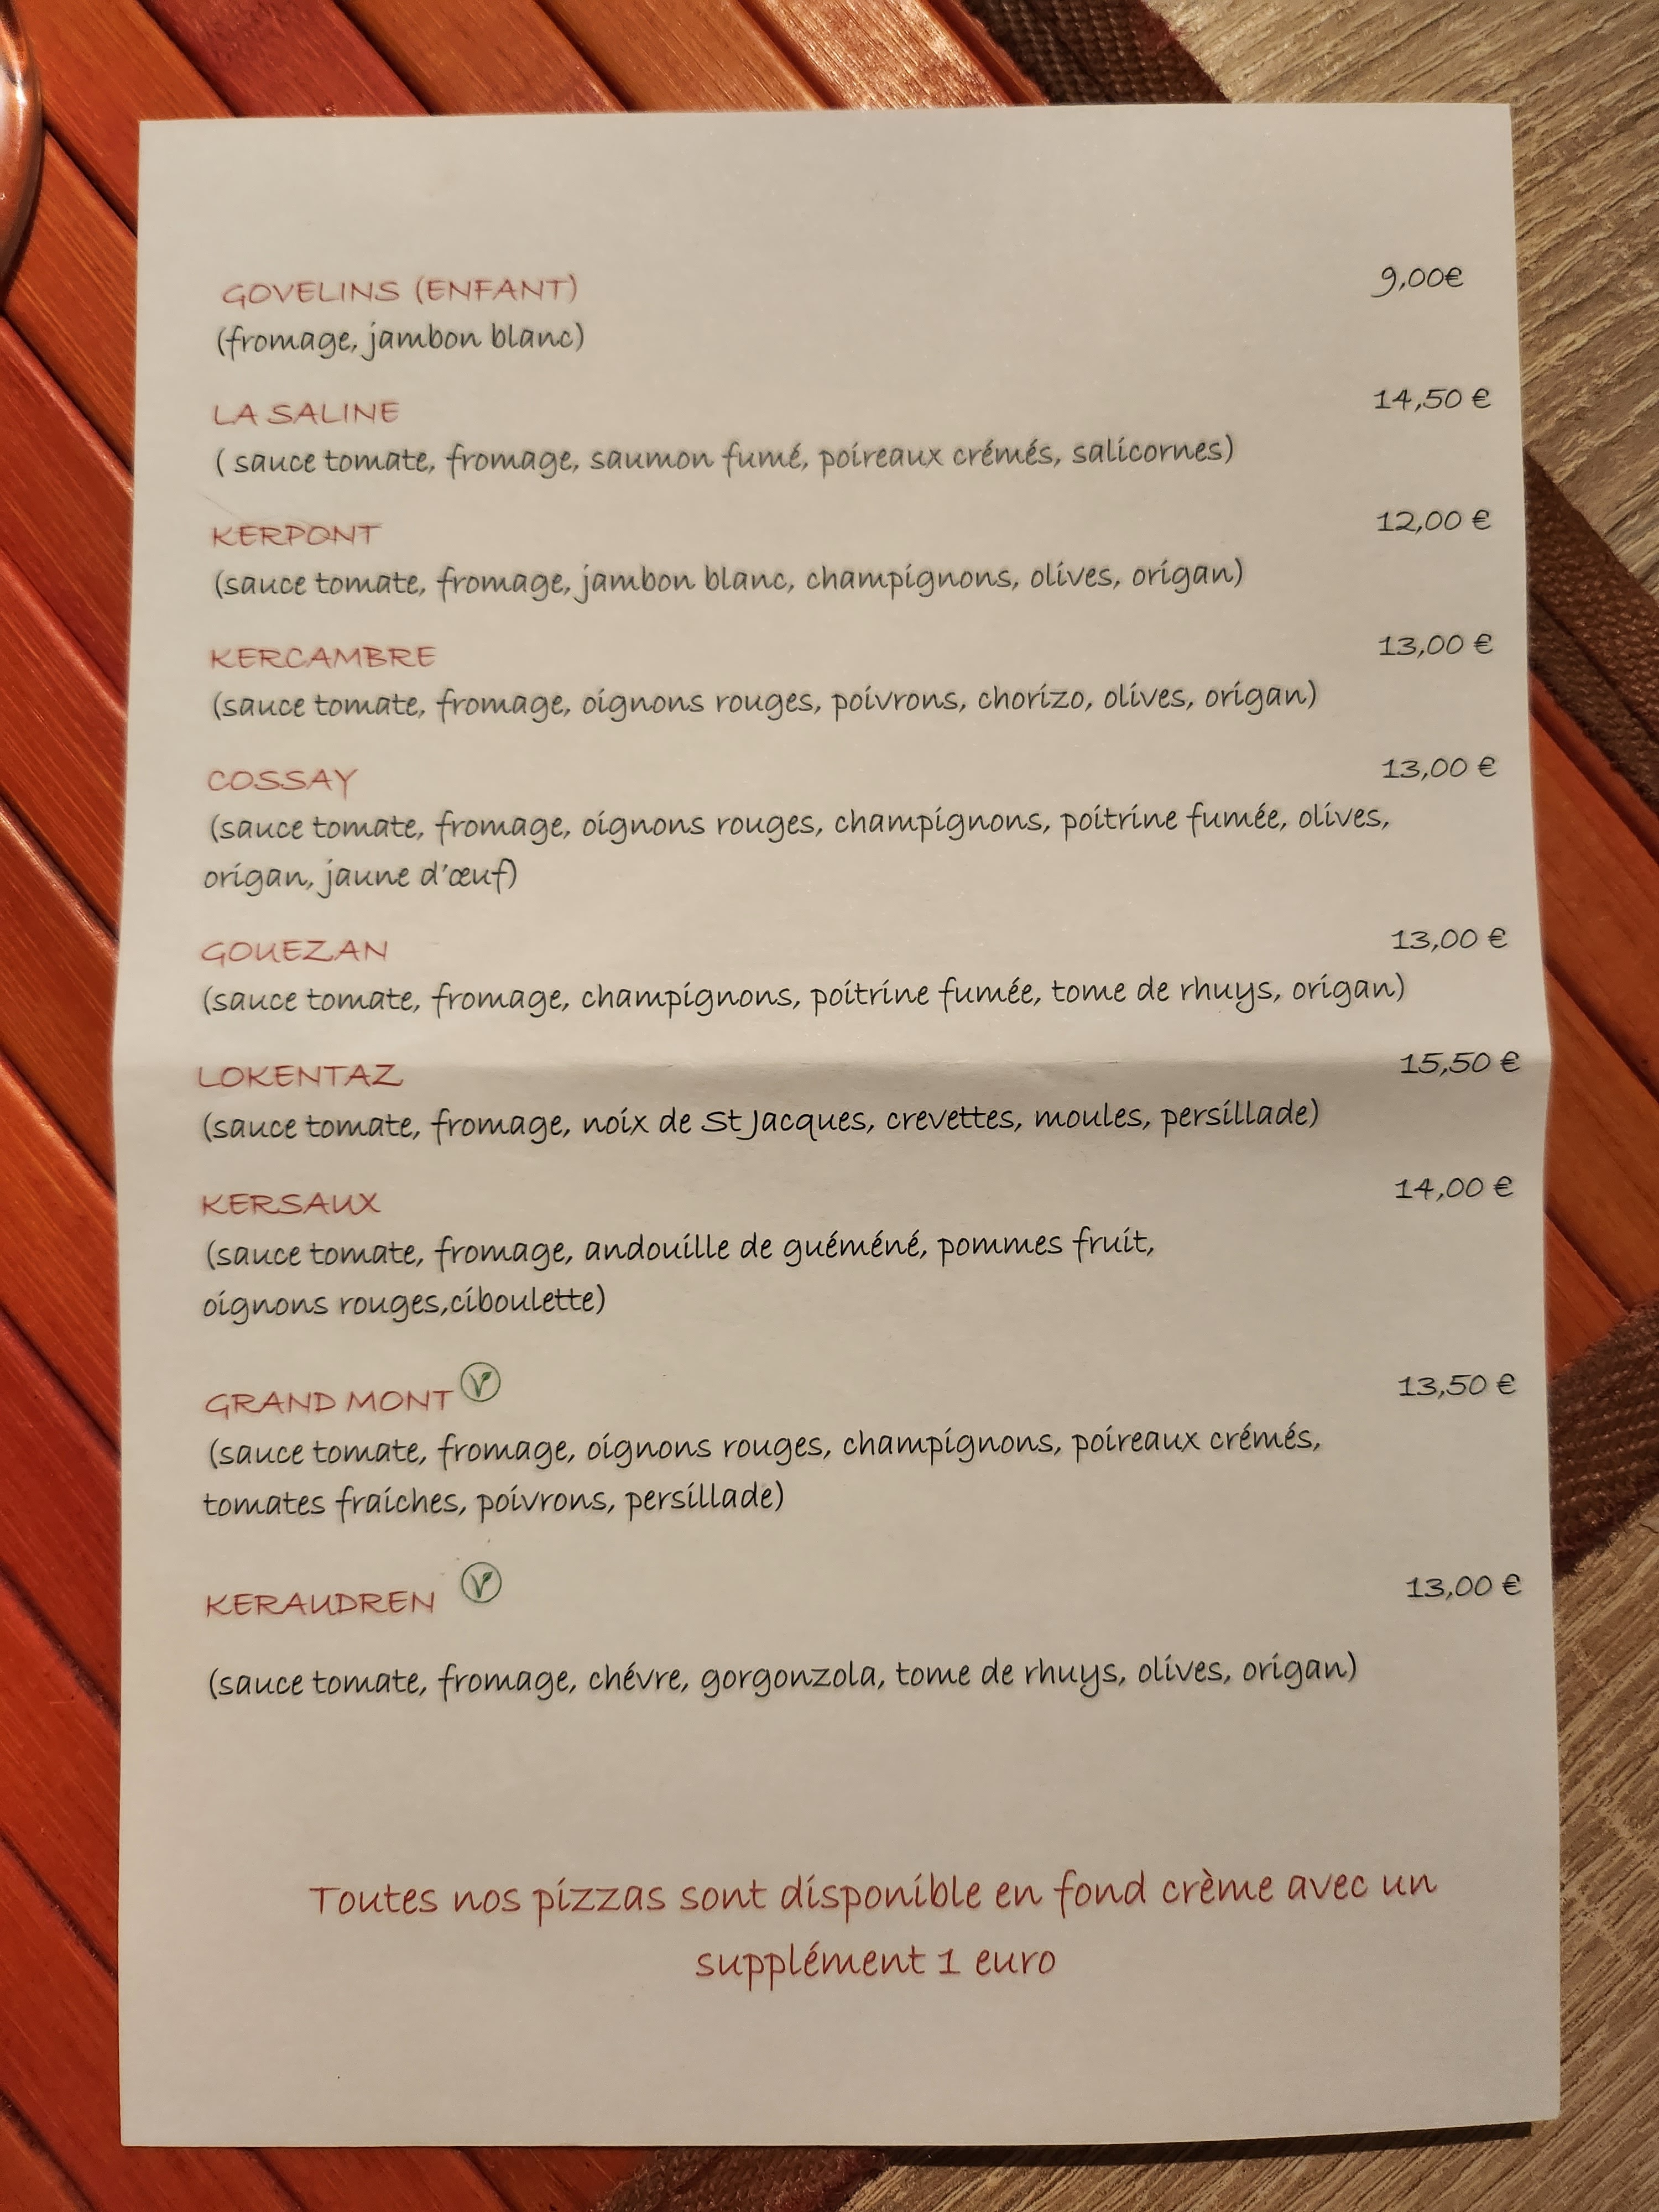 GOVELINS (ENFANT) 9,00€
(fromage, jambon blanc)
LA SALINE 14,50 €
( sauce tomate, fromage, saumon fumé, poireaux crémés, salicornes)
KERPONT 12,00 €
(sauce tomate, fromage, jambon blanc, champignons, olives, origan)
KERCAMBRE 13,00 €
(sauce tomate, fromage, oignons rouges, poivrons, chorizo, olives, origan)
COSSAY 13,00 €
(sauce tomate, fromage, oignons rouges, champignons, poitrine fumée, olives,
origan, jaune d'œuf)
GOUEZAN 13,00 €
(sauce tomate, fromage, champignons, poitrine fumée, tome de rhuys, origan)
LOKENTAZ 15,50 €
(sauce tomate, fromage, noix de St Jacques, crevettes, moules, persillade)
KERSAUX 14,00 €
(sauce tomate, fromage, andouille de guéméné, pommes fruit,
oignons rouges,ciboulette)
GRAND MONT V 13,50 €
(sauce tomate, fromage, oignons rouges, champignons, poireaux crémés,
tomates fraiches, poivrons, persillade)
KERAUDREN V 13,00 €
(sauce tomate, fromage, chévre, gorgonzola, tome de rhuys, olives, origan)
Toutes nos pizzas sont disponible en fond crème avec un
supplément 1 euro